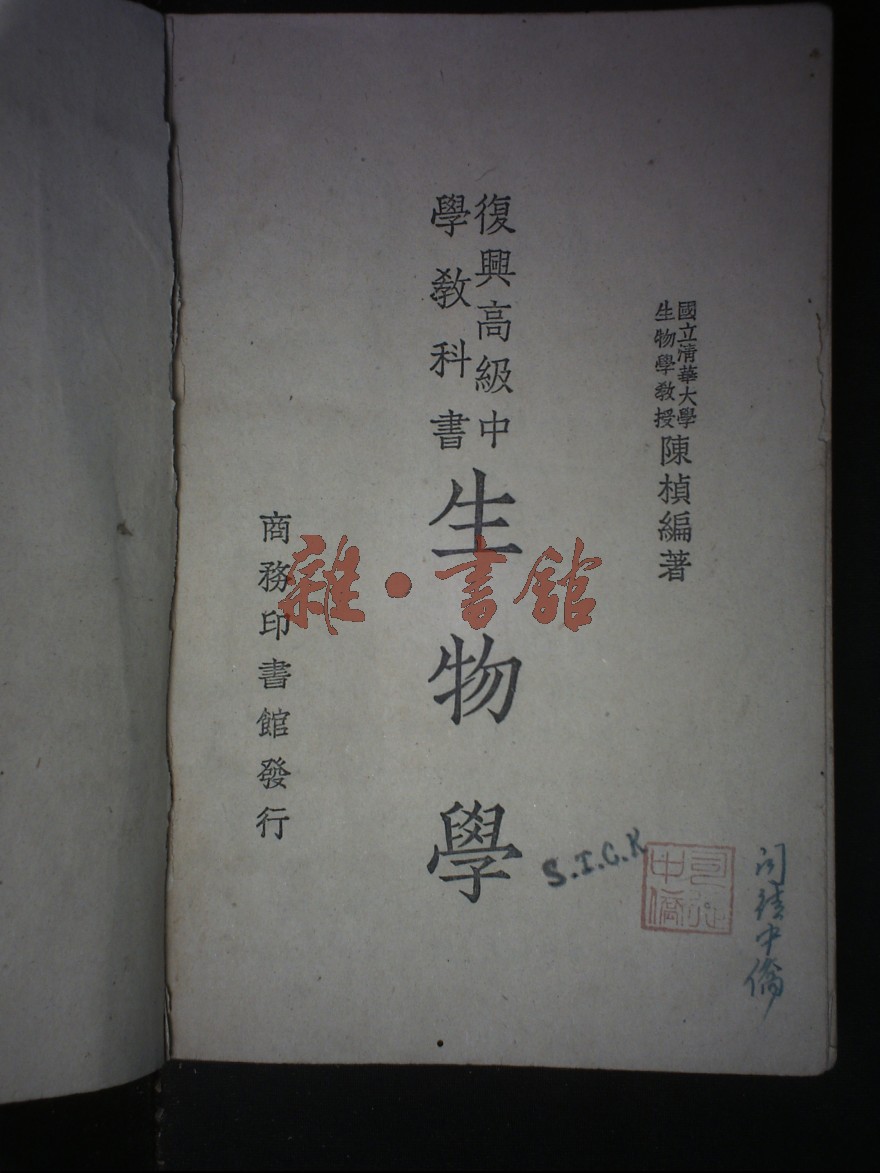 國立清華大學
生物學教授
陳楨編著
復興高級中
學教科書
生物學
商務印書館發行
雜·書館
S.I.C.K
中僑